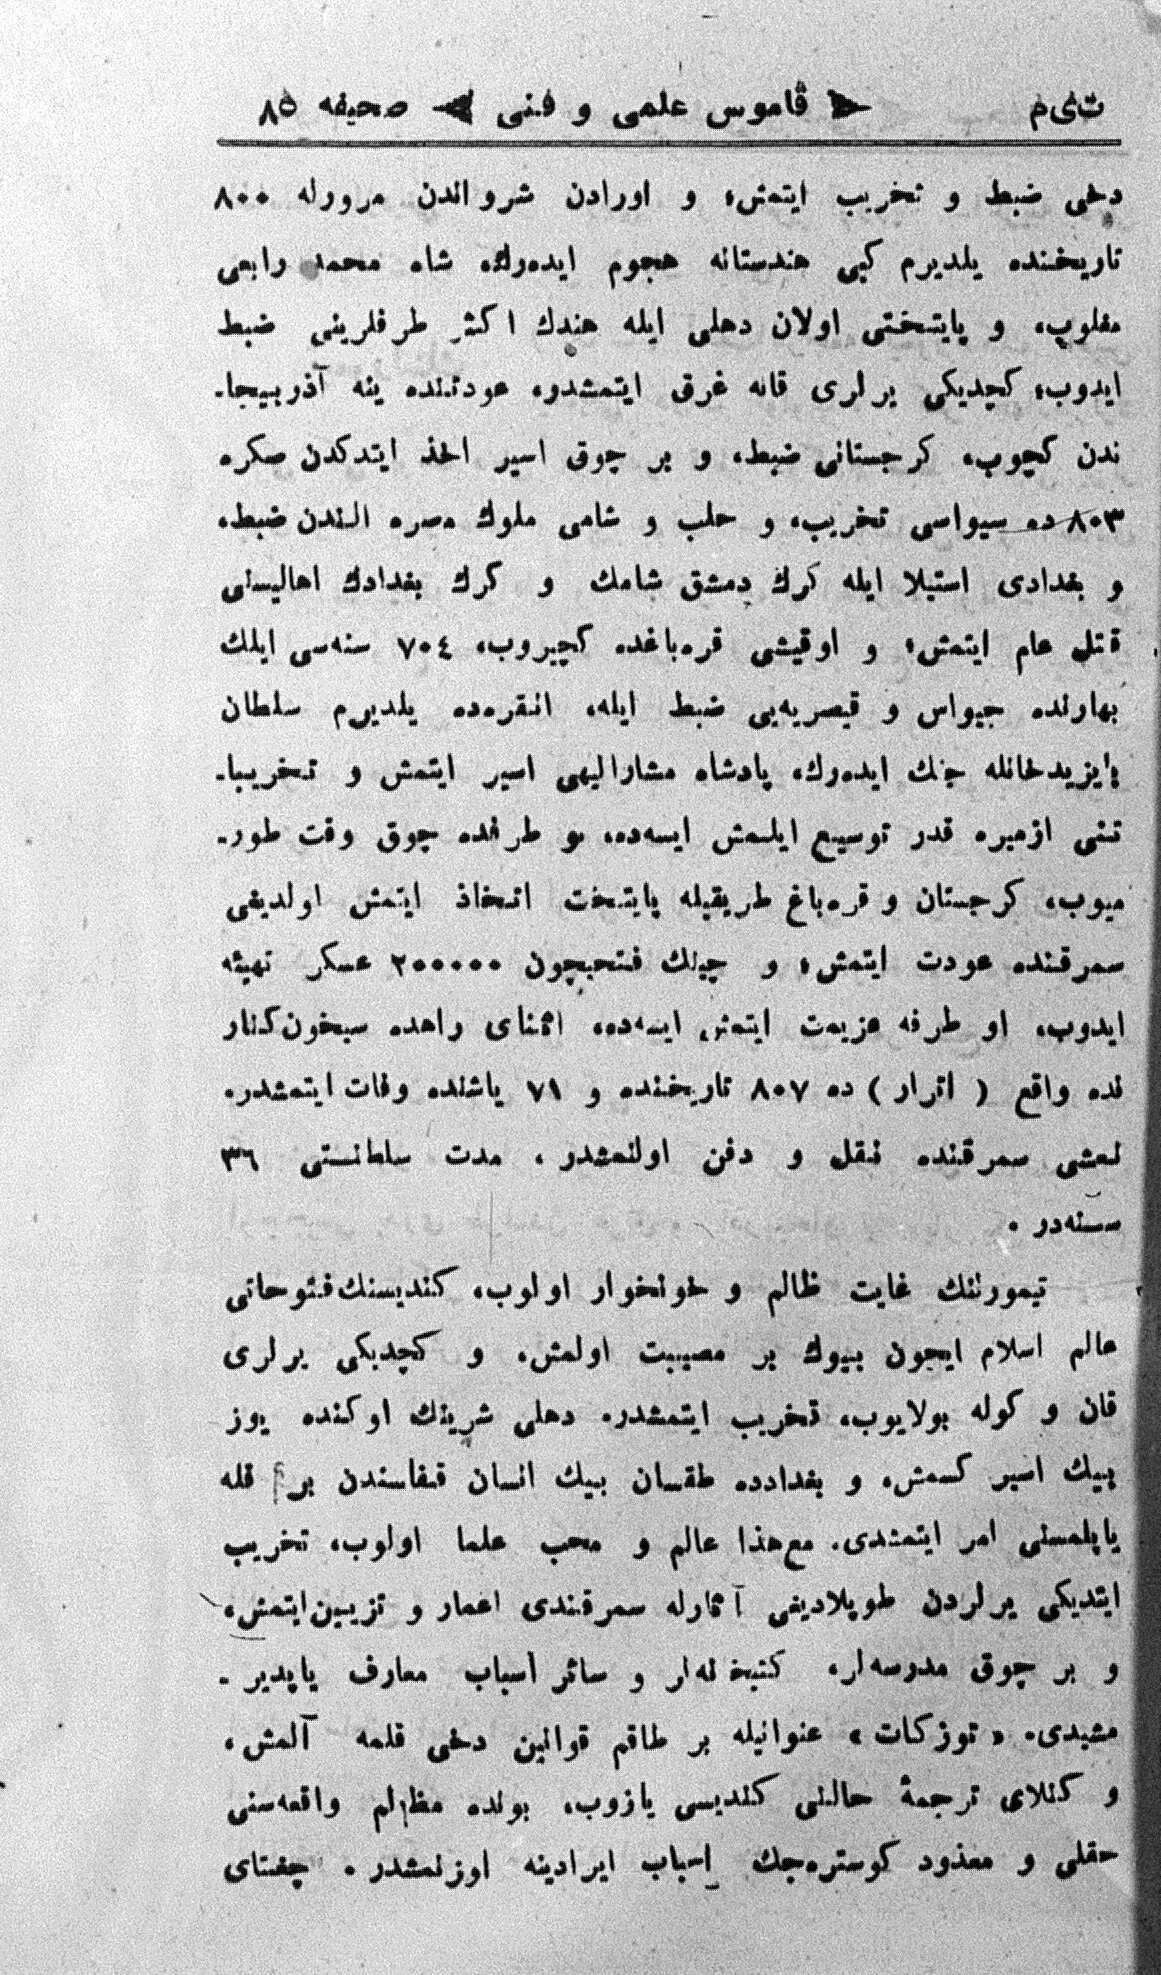 ت‌ی‌م قاموس علمی و فنی صحیفه ٨٥
دخی ضبط و تخریب ایتمش؛ و اورادن شرواندن مرورله ٨٠٠
تاریخنده یلدیرم کبی هندستانه هجوم ایده‌رك، شاه محمد رابعی
مغلوب، و پایتختی اولان دهلی ایله هندك اکثر طرفلرینی ضبط
ایدوب؛ کچدیکی یرلری قانه غرق ایتمشدر، عودتنده ینه آذربیجا-
ندن کچوب، کرجستانی ضبط، و بر چوق اسیر اخذ ایتدکدن صکره
٨٠٣ ده سیواسی تخریب، و حلب و شامی ملوك مصره الندن ضبط،
و بغدادی استیلا ایله کرك دمشق شامك و کرك بغدادك اهالیسنی
قتل عام ایتمش؛ و اوقیشی قره‌باغده کچیروب، ٧٠٤ سنه‌سی ایلك
بهارنده جیواس و قیصریه‌یی ضبط ایله، انقره‌ده یلدیرم سلطان
بایزیدخانله جنك ایده‌رك، پادشاه مشارالیهی اسیر ایتمش و تخریبا-
تنی ازمیره قدر توسیع ایلمش ایسه‌ده، بو طرفده چوق وقت طور-
میوب، کرجستان و قره‌باغ طریقیله پایتخت اتخاذ ایتمش اولدیغی
سمرقنده عودت ایتمش؛ و چینك فتحیچون ٢٠٠٠٠٠ عسکر تهیئه
ایدوب، او طرفه عزیمت ایتمش ایسه‌ده، اثنای راهده سیخون‌کنار
نده واقع ( اترار ) ده ٨٠٧ تاریخنده و ٧١ یاشنده وفات ایتمشدر.
نعشی سمرقنده نقل و دفن اولنمشدر ، مدت سلطانستی ٣٦
سنه‌در .
تیمورلنك غایت ظالم و خونخوار اولوب، کندیسنك فتوحاتی
عالم اسلام ایچون بیوك بر مصیبت اولمش، و کچدیکی یرلری
قان و کوله بولایوب، تخریب ایتمشدر. دهلی شرینك اوکنده یوز
بیك اسیر کسمش، و بغدادده طقسان بیك انسان قفاسندن بر قله
یاپلمسنی امر ایتمندی. مع‌هذا عالم و محب علما اولوب، تخریب
ایتدیکی یرلردن طوپلادیغی آثارله سمرقندی اعمار و تزیین ایتمش،
و بر چوق مدرسه‌لر، کتبخانه‌لر و سائر أسباب معارف یاپدیر -
مشیدی. « توزکات » عنوانیله بر طاقم قوانین دخی قلمه آلمش،
و کندی ترجمهٔ حالنی کندیسی یازوب، بونده مظالم واقعه‌سنی
حقلی و معذود کوستره‌جك اسباب ایرادینه اوزنمشدر . چغتای